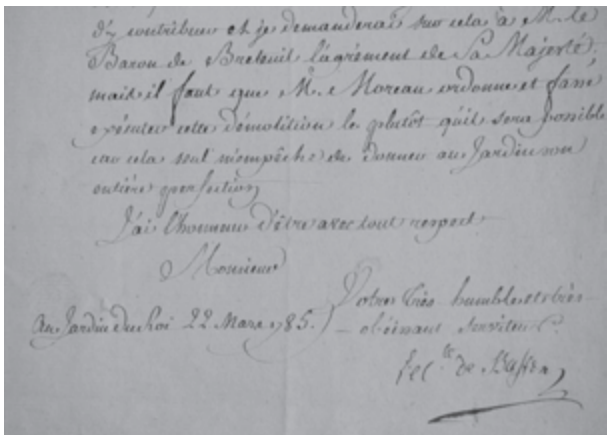 d'y contribuer et je demanderai sur cela à M. le
Baron de Breteuil l'agrément de Sa Majesté;
mais il faut que M. Moreau ordonne et fasse
exécuter cette démolition le plutôt qu'il sera possible
car cela seul m'empêche de donner au Jardin son
entière perfection,
J'ai l'honneur d'être avec tout respect
Monsieur
Votre très humble et très
au Jardin du Roi 22 Mars 1785.
obéissant serviteur
Le Cte de Buffon